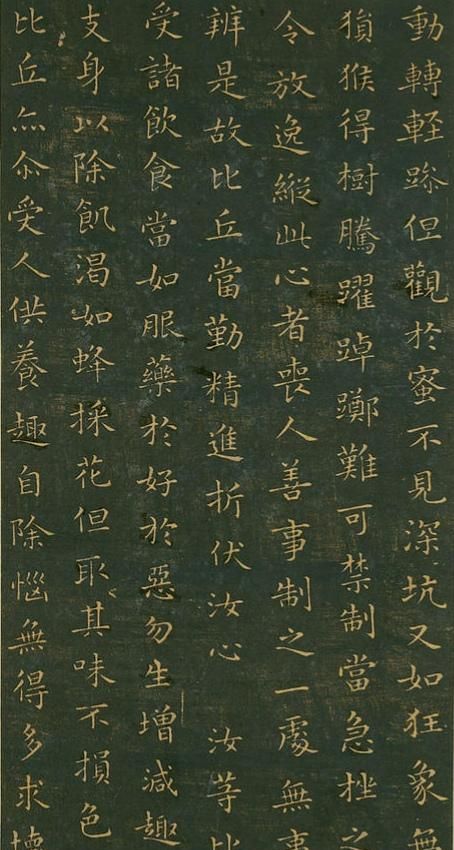 動轉輕躁但觀於蜜不見深坑又如狂象無
猿猴得樹騰躍踔躑難可禁制當急挫之
令放逸縱此心者喪人善事制之一處無事
辨是故比丘當勤精進折伏汝心　汝等比
受諸飲食當如服藥於好於惡勿生增減趣
支身以除飢渴如蜂採花但取其味不損色
比丘亦尒受人供養趣自除惱無得多求壞